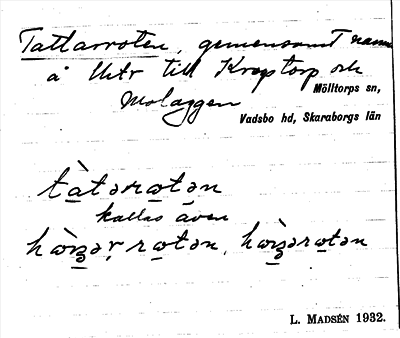 Tattarroten, gemensamt namn
å Utr till Kroptorp och
Molaggen
Mölltorps sn,
Vadsbo hd, Skaraborgs län
tàtərωtən
kallas även
rωtən,
L. MADSÉN 1932.